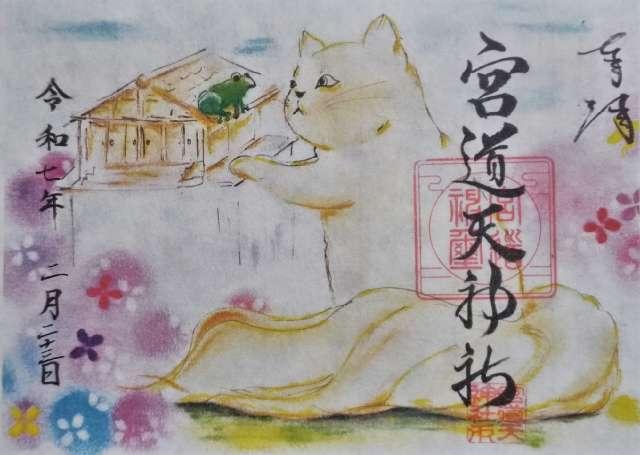 奉拝
宮道天神社
令和七年 二月二十三日